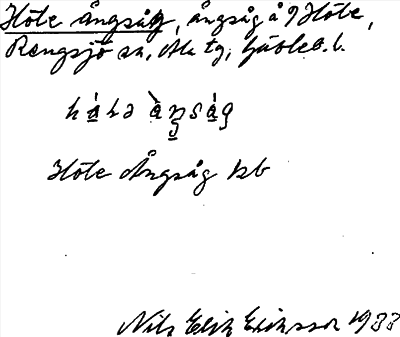 Höle ångsåg, ångsåg å 7 Höle,
Rengsjö sn, Ala tg, Gävleb. l.
Höle Ångsåg kb
Nils Erik Eriksson 1933